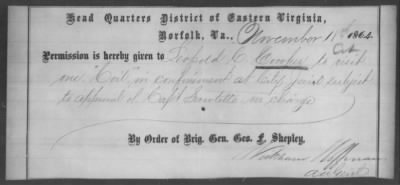 Head Quarters District of Eastern Virginia,
Norfolk, Va., November 11th 1864.
Permission is hereby given to Leopold C. Cowper to visit
one "Coil" in confinement at City jail subject
to approval of Capt in charge
By Order of Brig. Gen. Geo. F. Shepley,
Wickham Hoffman